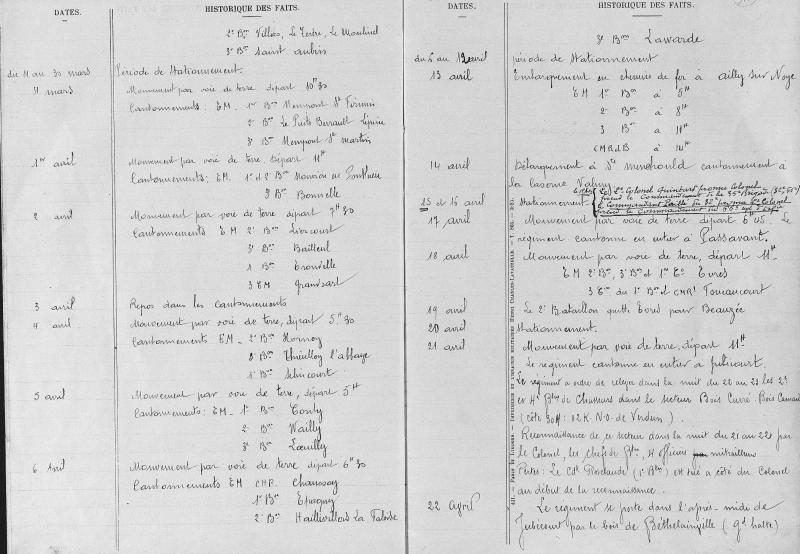 DATES.
HISTORIQUE DES FAITS.
2e Bon Villers, Le Tertre, Le
3e Bon Saint Aubin
du 11 au 30 mars
Période de Stationnement.
31 mars
Mouvement par voie de terre départ 10H30
Cantonnements: EM - 1er Bon St Firmin
2e Bon Le Puits Berrault
3e Bon St Martin
1er avril
Mouvement par voie de terre, départ 11H
Cantonnements: EM. 1er et 2e Bon en Ponthieu
3e Bon Bonnelle
2 avril
Mouvement par voie de terre départ 7H30
Cantonnements EM 2e Bon Liercourt
3e Bon Bailleul
1 Bon Erondelle
3 EM Grandsart
3 avril
Repos dans les cantonnements
4 avril
Mouvement par voie de terre, départ 5H30
Cantonnements EM - 2e Bon Hornoy
3e Bon Thieulloy l'abbaye
1er Bon
5 avril
Mouvement par voie de terre, départ 5H
Cantonnements: EM - 1er Bon Conty
2e Bon Wailly
3e Bon Lœuilly
6 Avril
Mouvement par voie de terre départ 6H30
Cantonnements EM CHR. Chaussoy
1er Bon Epagny
2e Bon Hallivillers La Faloise
DATES.
HISTORIQUE DES FAITS.
3e Bon Lawarde
du 6 au 12 avril
période de Stationnement
13 avril
Embarquement en chemin de fer à Ailly sur Noye
EM 1er Bon à 5H
2e Bon à 8H
3 Bon à 11H
CMR d B à 14H
14 avril
Débarquement à Ste Menehould cantonnement à
la caserne Valmy
15 et 16 avril
Stationnement
Le Lt Colonel promu Colonel
prend le Commandement de la 35e Brigade
Le Commandant du 32e promu Lt Colonel
prend le Commandement du
17 avril
Mouvement par voie de terre départ 6H05. Le
régiment cantonne en entier à Passavant.
18 avril
Mouvement par voie de terre, départ 11H.
EM 2e Bon, 3e Bon et 1re Cie Evres
3 Cie du 1er Bon et CMR1 Foucaucourt
19 avril
Le 2e Bataillon quitte Evres pour Beauzée
20 avril
Stationnement.
21 avril
Mouvement par voie de terre, départ 11H
Le régiment cantonne en entier à Jubécourt.
Le régiment a ordre de relever dans la nuit du 22 au 23 les 2e
et 4e Btons de Chasseurs dans le secteur Bois Carré Bois Camard
(côte 304: 12K. N.O. de Verdun).
Reconnaissance de ce secteur dans la nuit du 21 au 22 par
le Colonel, les chefs de Bon, 4 officiers mitrailleur
Pertes: Le Cdt (1er Bon) est tué à côté du Colonel
au début de la reconnaissance.
22 Avril
Le régiment se porte dans l'après-midi de
Jubécourt par le bois de Béthelainville (gde halte)